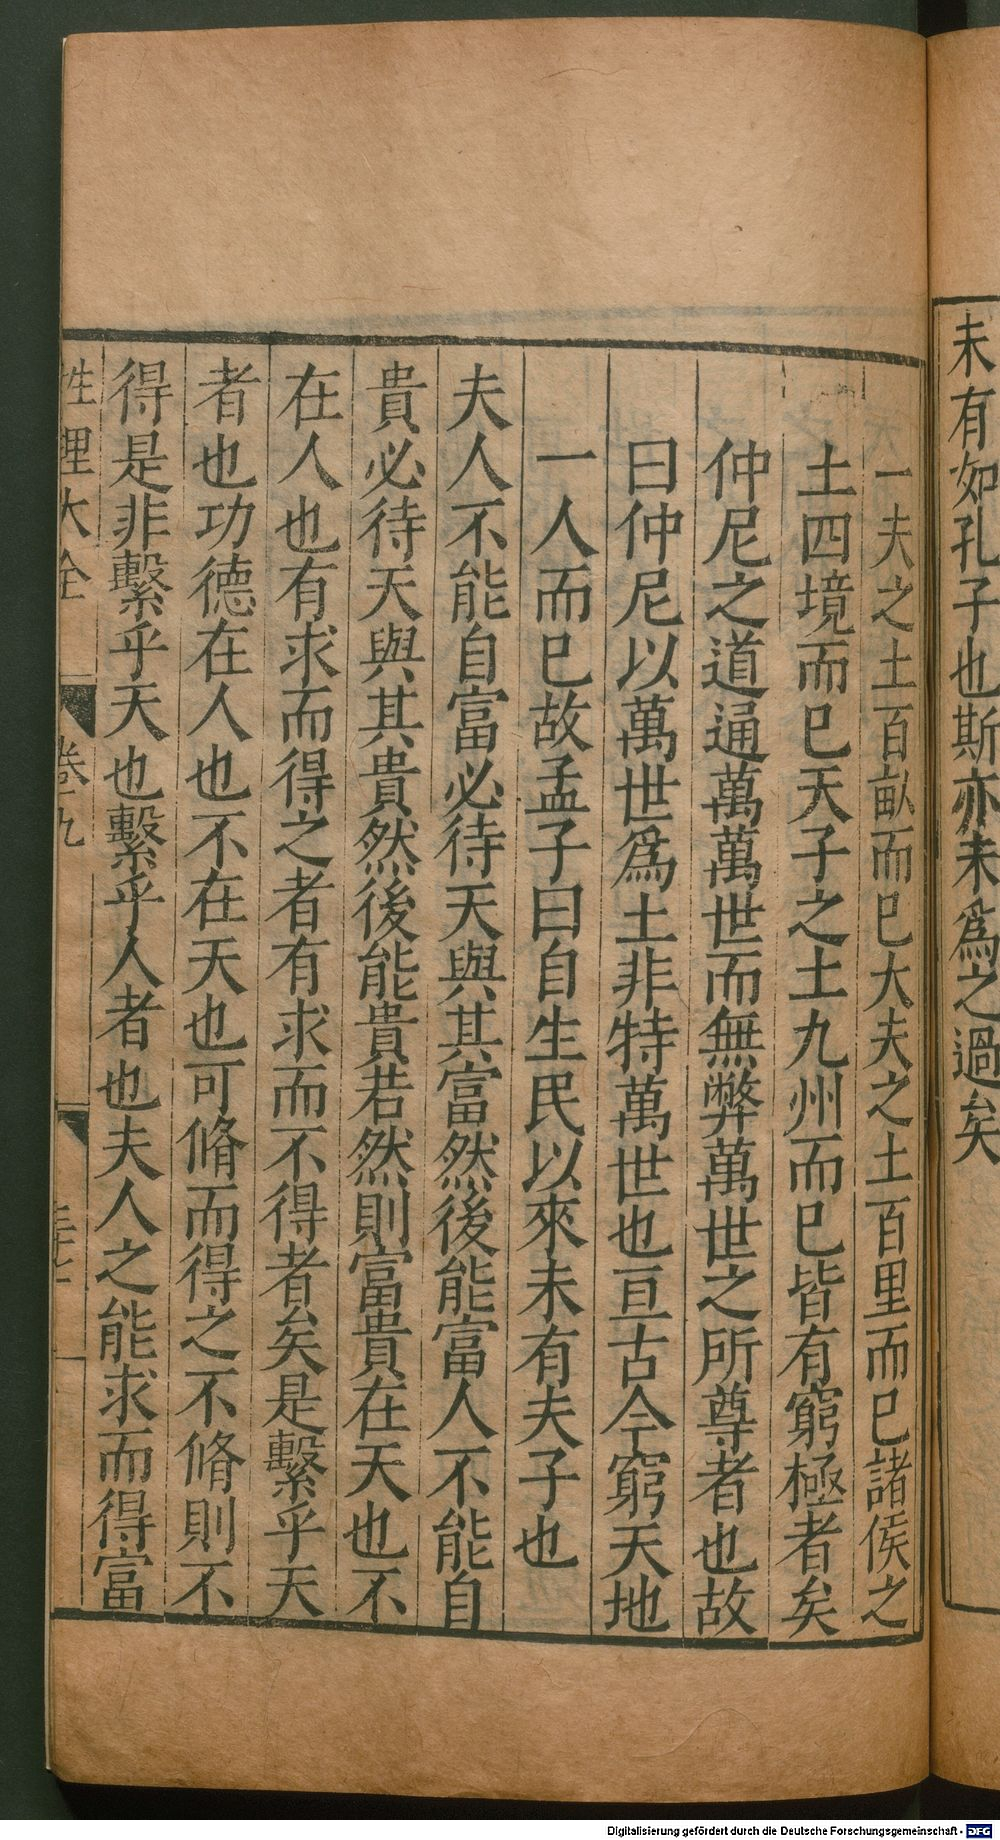 未有如孔子也斯亦未爲之過矣
一夫之土百畝而已大夫之土百里而已諸侯之
土四境而已天子之土九州而已皆有窮極者矣
仲尼之道通萬萬世而無弊萬世之所尊者也故
曰仲尼以萬世爲土非特萬世也亘古今窮天地
一人而已故孟子曰自生民以來未有夫子也
夫人不能自富必待天與其富然後能富人不能自
貴必待天與其貴然後能貴若然則富貴在天也不
在人也有求而得之者有求而不得者矣是繫乎天
者也功德在人也不在天也可脩而得之不脩則不
得是非繫乎天也繫乎人者也夫人之能求而得富
性理大全 卷九
Digitalisierung gefördert durch die Deutsche Forschungsgemeinschaft - DFG